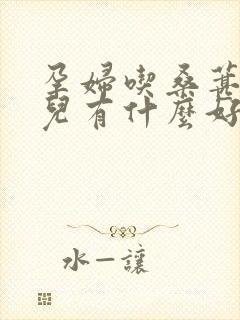 孕婦喫桑葚
兒有什麼好
水一讓